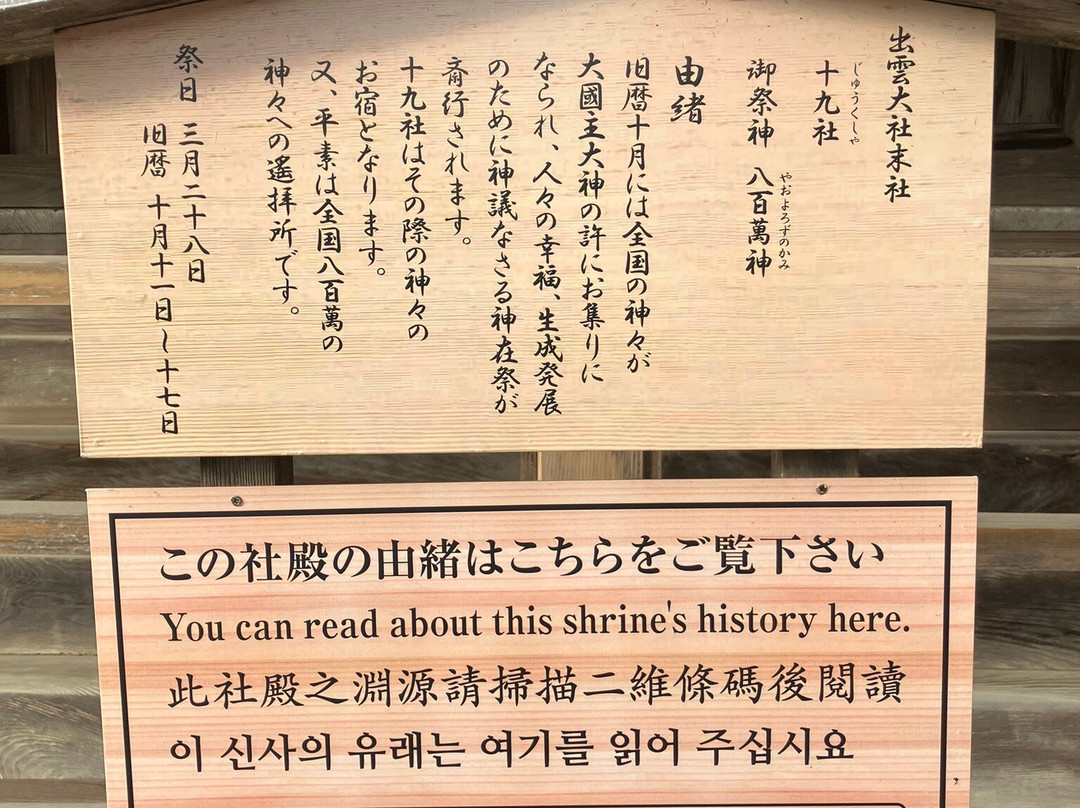 出雲大社末社
じゅうくしゃ
十九社
やおよろずのかみ
御祭神 八百萬神
由緒
旧暦十月には全国の神々が
大國主大神の許にお集りに
なられ、人々の幸福、生成発展
のために神議なさる神在祭が
斎行されます。
十九社はその際の神々の
お宿となります。
又、平素は全国八百萬の
神々への遥拝所です。
祭日 三月二十八日
旧暦 十月十一日〜十七日
この社殿の由緒はこちらをご覧下さい
You can read about this shrine's history here.
此社殿之淵源請掃描二維條碼後閲讀
이 신사의 유래는 여기를 읽어 주십시요